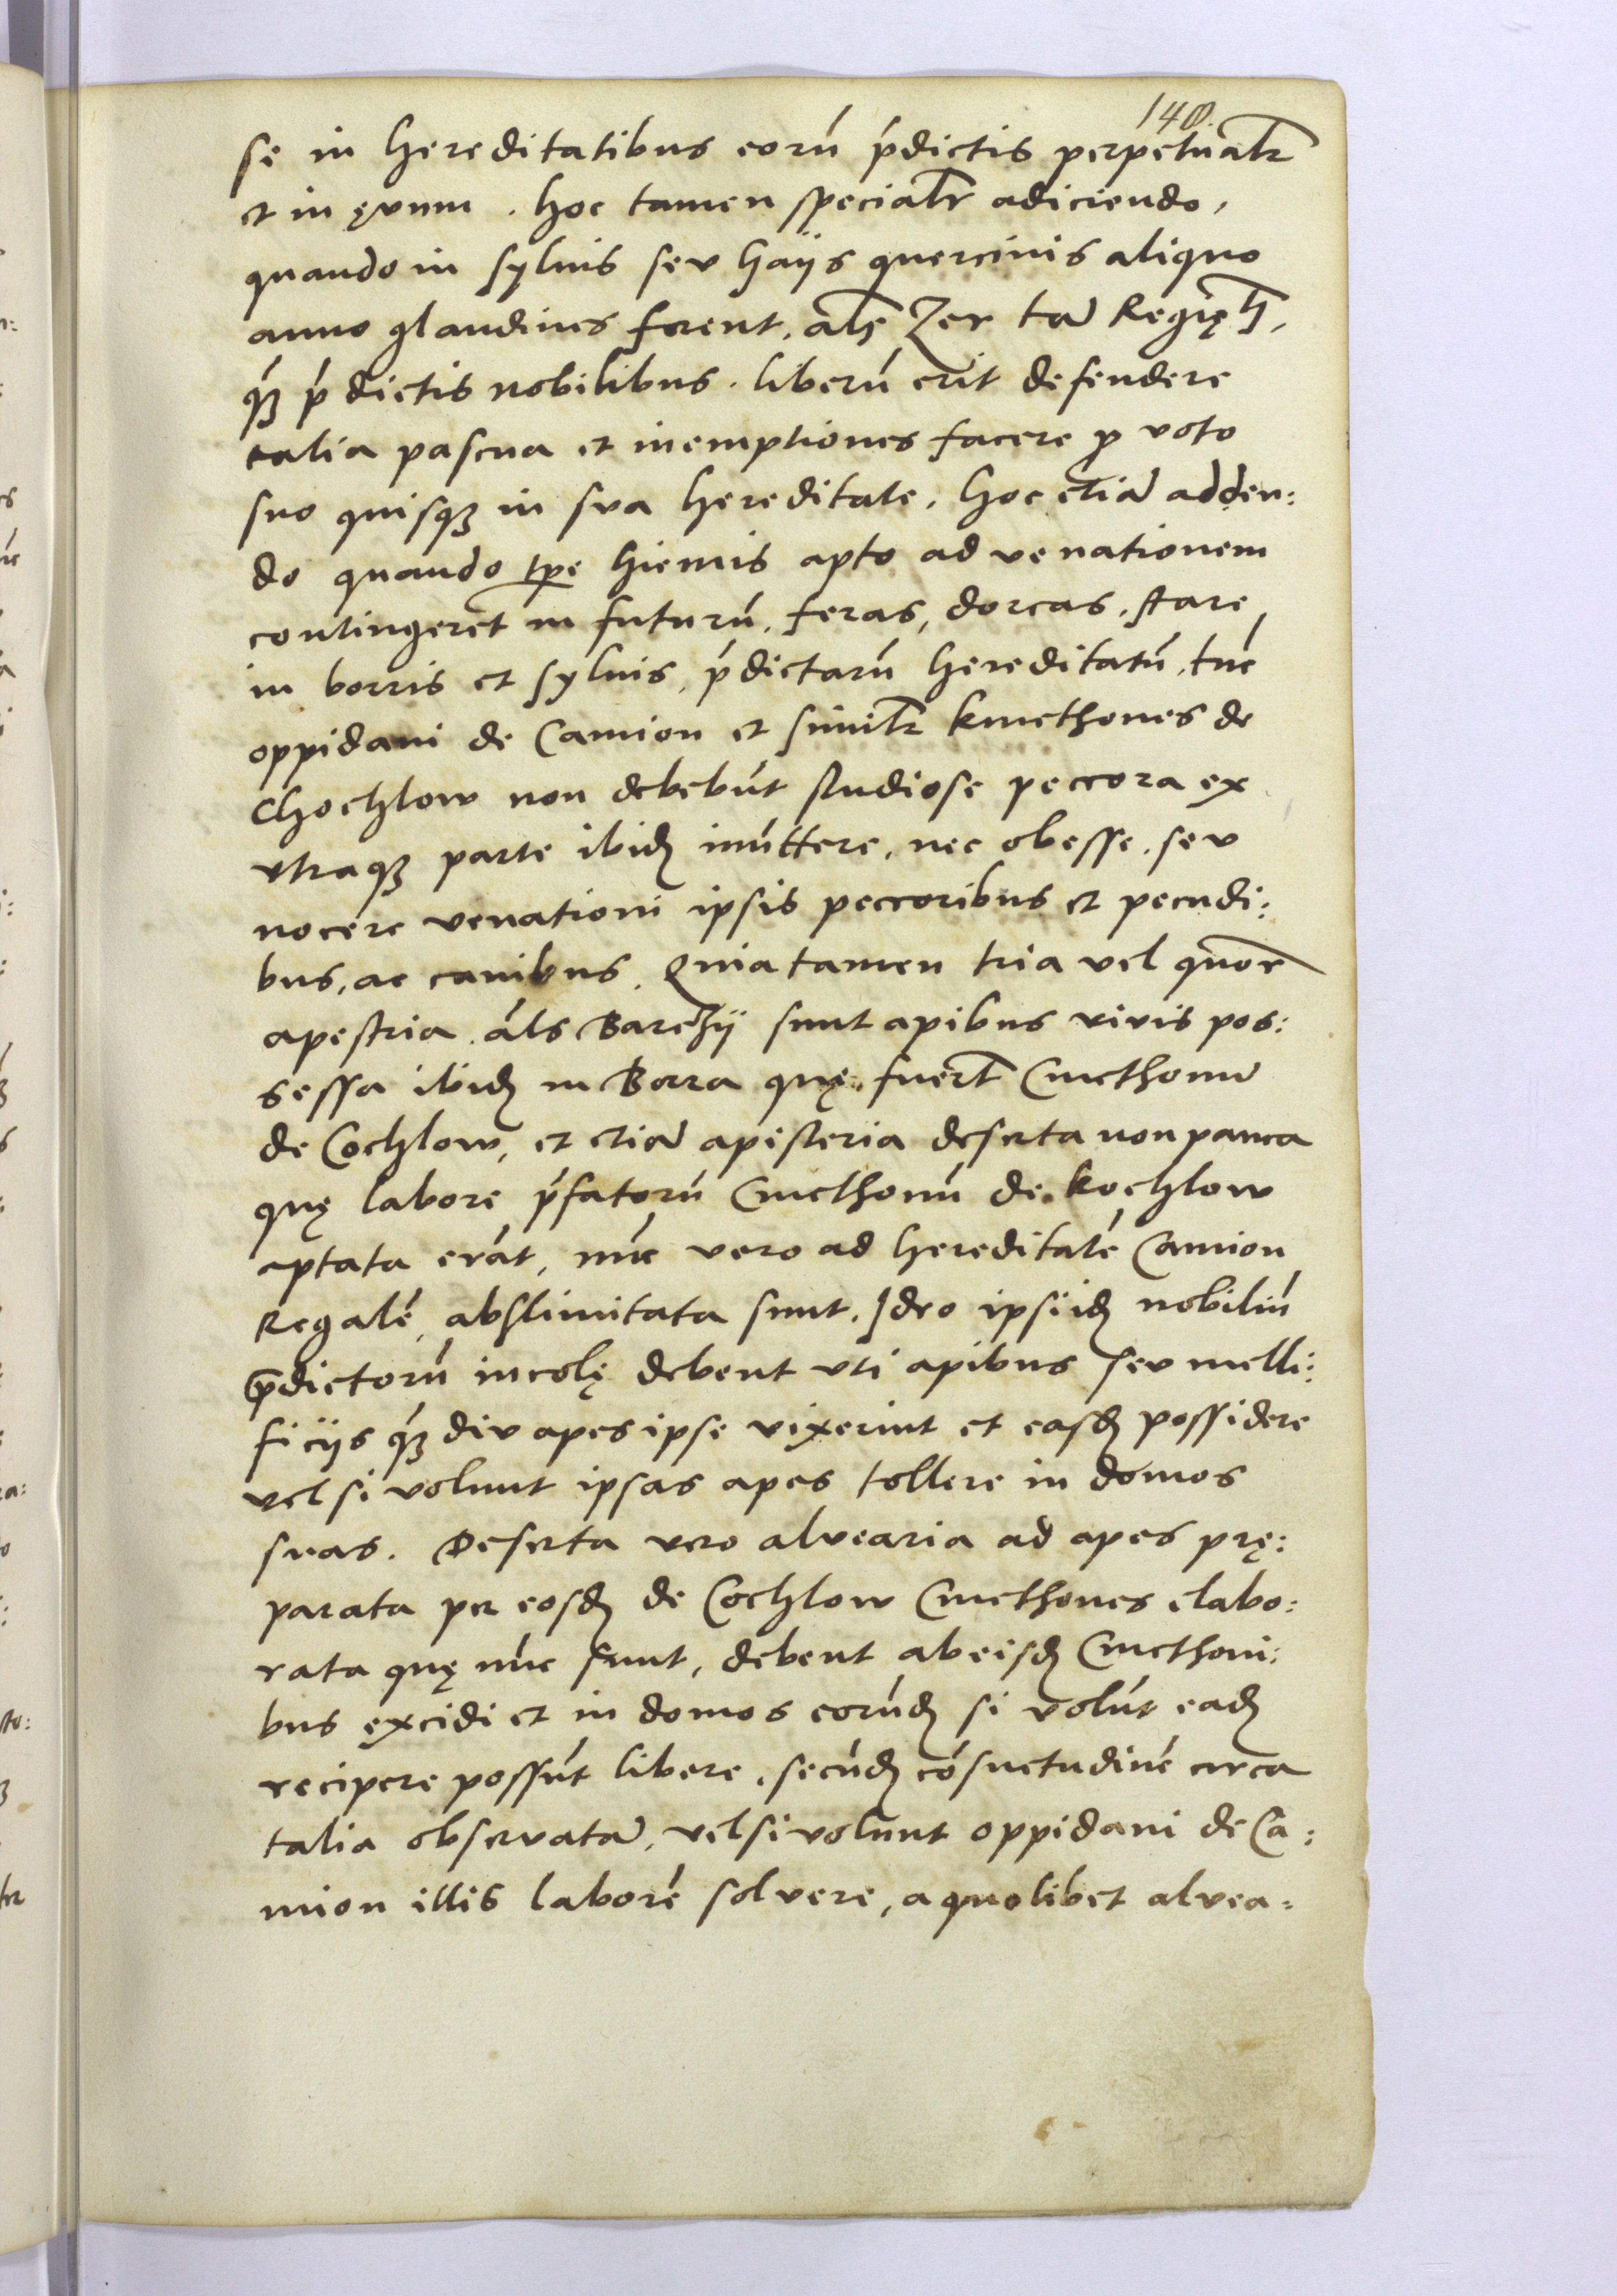 140.
se in hereditatibus eorū p̄dictis perpetualr
et in ęvum. hoc tamen specialr adiciendo,
quando in sylvis sev haijs quercinis aliquo
anno glandines ferent, als Zer tā Regię
qȝ p̄dictis nobilibus. liberū erit defendere
talia pascua et inemptiones facere p voto
suo quisqȝ in sva hereditate, hoc etiā adden:
do quando tp̄e hiemis apto ad venationem
contingeret in futurū, feras, dorcas, stare
in borris et sylvis, p̄dictarū hereditatū, tūc
oppidani de Camion et similr kmethones de
Chochlow non debebūt studiose peccora ex
vtraqȝ parte ibidȝ imittere, nec obesse, sev
nocere venationi ipsis peccoribus et pecudi:
bus, ac canibus. Quia tamen tria vel quor
apestria, als Barczij sunt apibus vivis pos:
sessa ibidȝ in Borra quę fuert Cmethonū
de Cochlow, et etiā apisteria deserta non pauca
quę labore p̄fatorū Cmethonū de Kochlow
aptata erāt, nūc vero ad hereditatē Camion
Regalē, abslimitata sunt. Ideo ipsiidȝ nobiliū
p̄dictorū incolę debent vti apibus sev melli:
ficijs qȝ div apes ipse vixerint et easdȝ possidere
vel si volunt ipsas apes tollere in domos
svas. Deserta vero alvearia ad apes prę:
parata per eosdȝ de Cochlow Cmethones elabo:
rata quę nūc sunt, debent ab eisdȝ Cmethoni:
bus excidi et in domos eorūdȝ si volūt eadȝ
recipere possūt libere, secūdȝ cōsuetudinē circa
talia observatā, vel si volunt oppidani de Ca:
mion illis laborē solvere, a quolibet alvea: